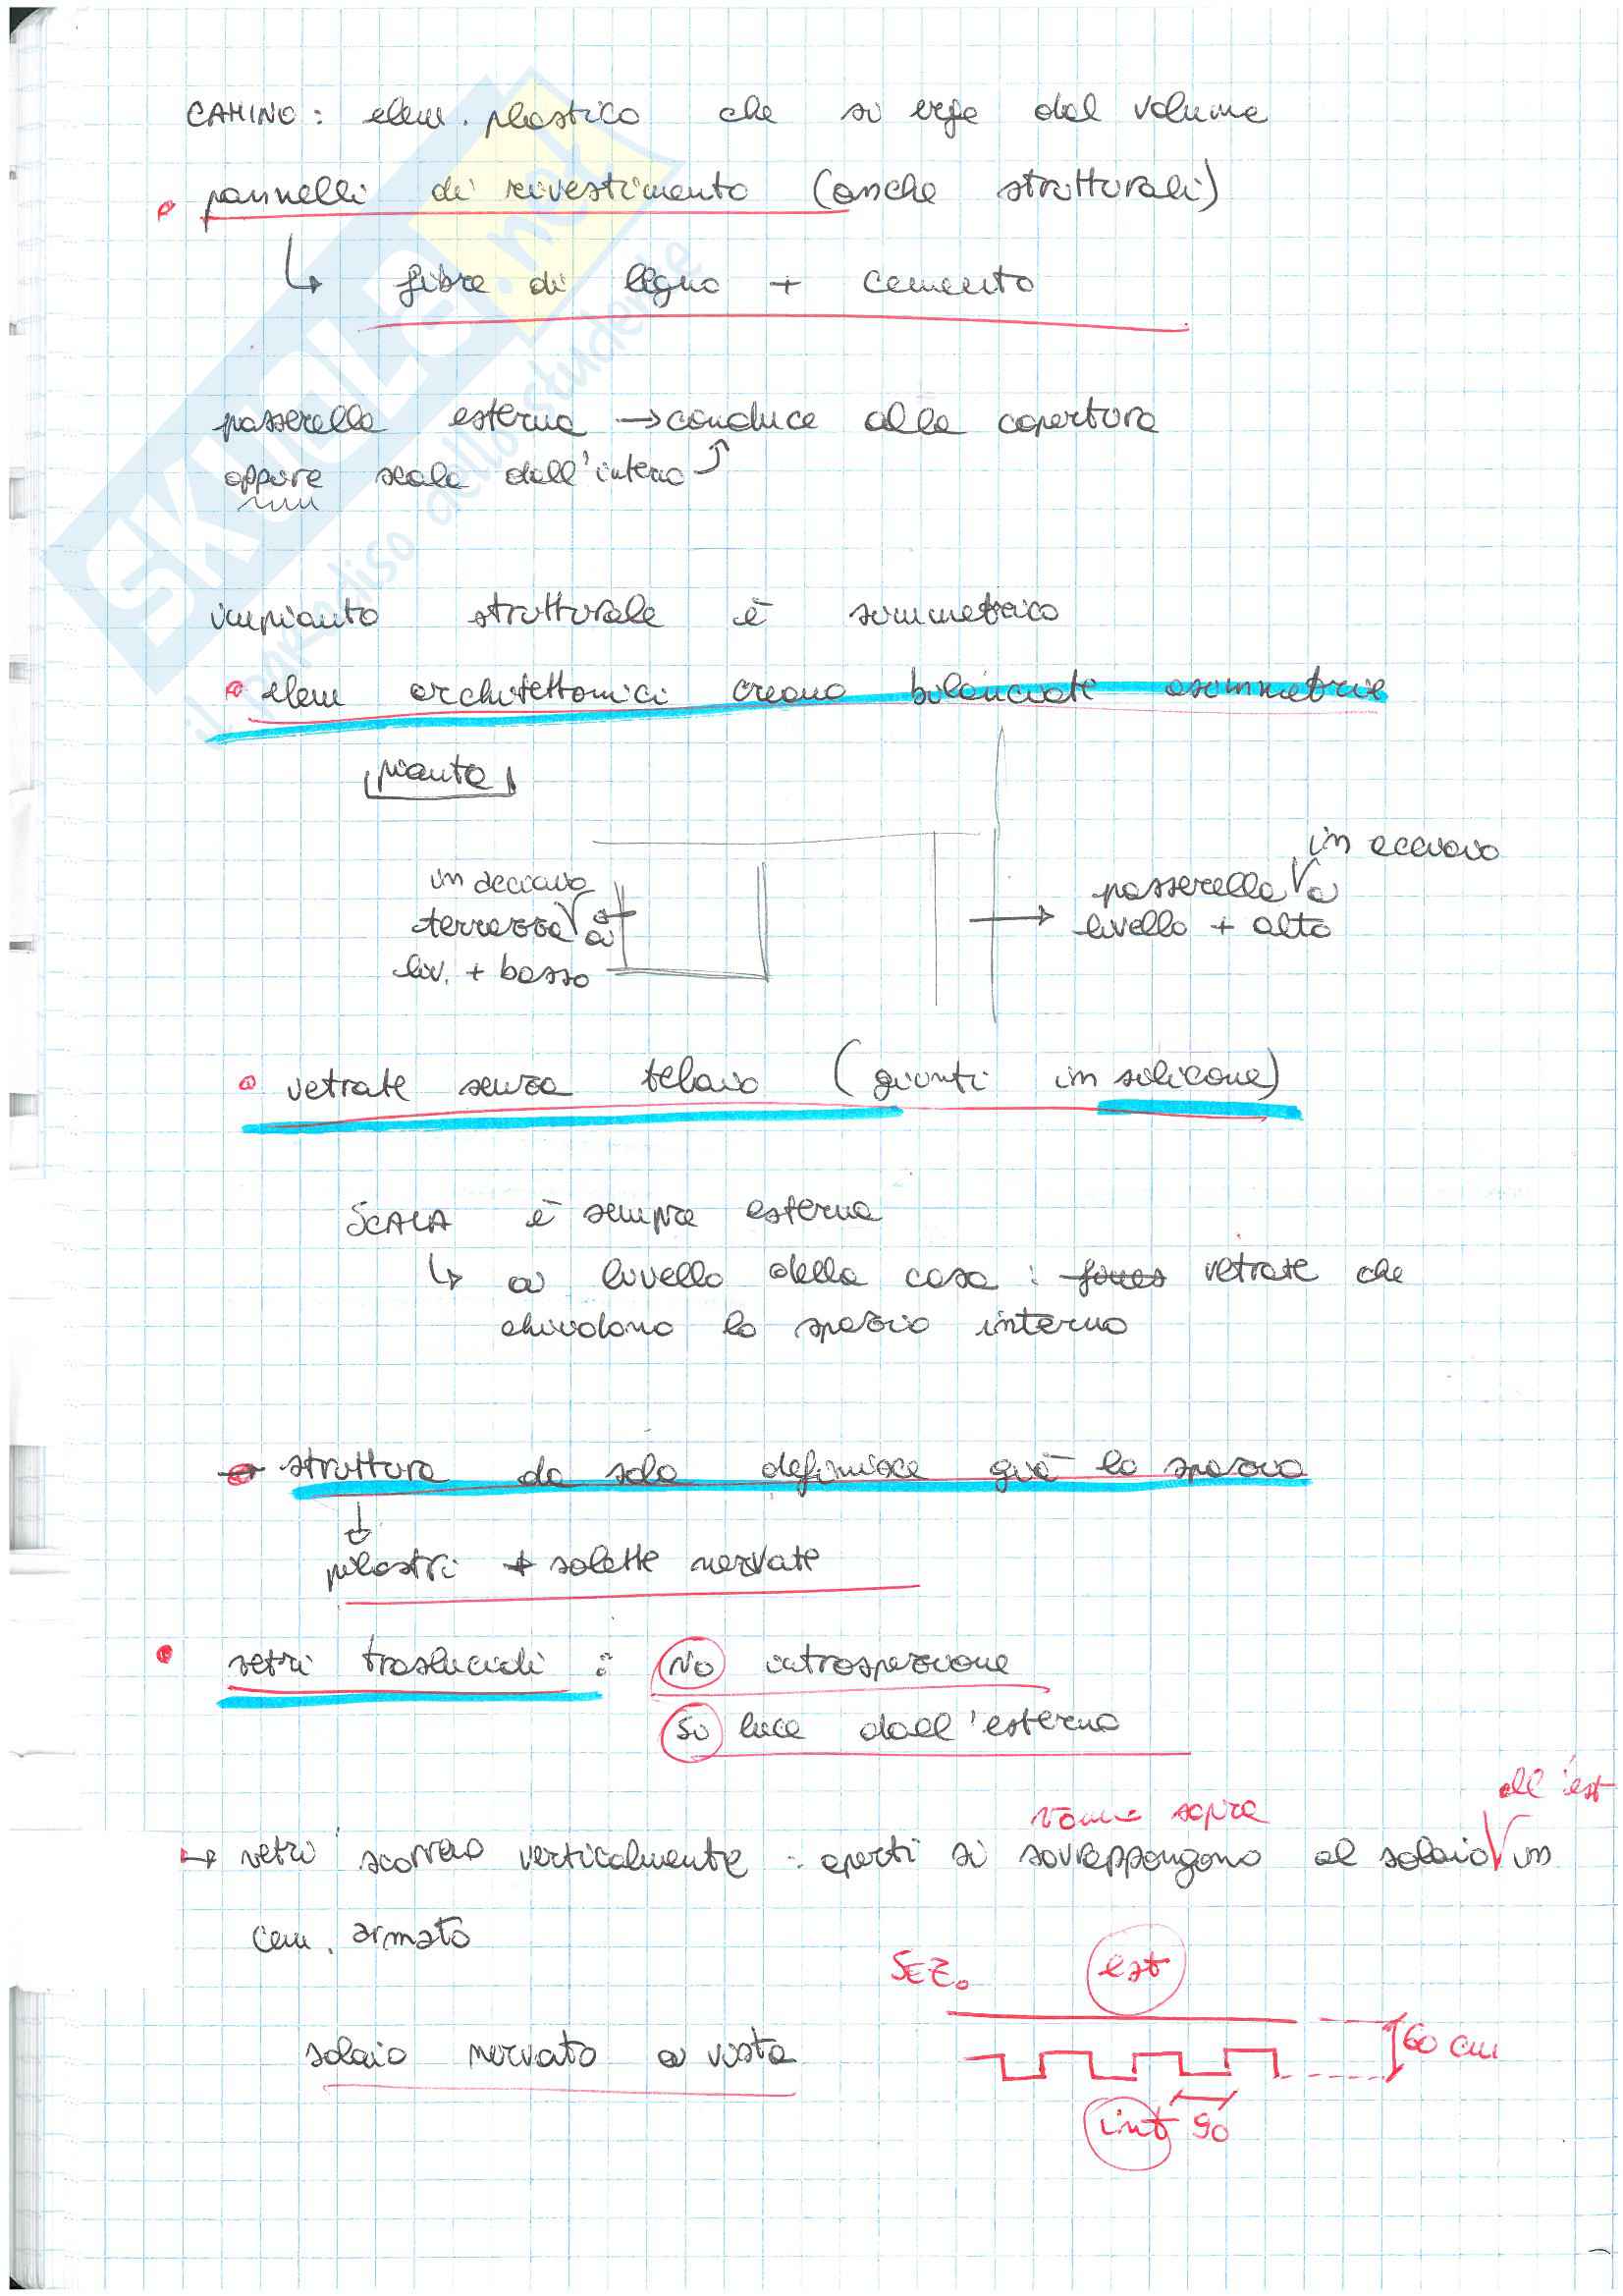 CAMINO: elem. plastico che si erge dal volume
pannelli di rivestimento (anche strutturali)
↳ fibre di legno + cemento
passerella esterna → conduce alla copertura
oppure scala dall'interno
impianto strutturale è simmetrico
elem architettonici creano bilanciate asimmetrie
pianta
in acciaio
in acciaio
passerella a
terrazza a
livello + alto
liv. + basso
vetrate senza telaio (giunti in silicone)
SCALA è sempre esterna
↳ a livello della casa : vetrate che
chiudono lo spazio interno
struttura da sola definisce già lo spazio
pilastri + solette nervate
vetri traslucidi : NO introspezione
SI luce dall'esterno
all'est
vanno sopra
→ vetri scorrono verticalmente : aperti si sovrappongono al solaio in
cem. armato
SEZ. est
solaio nervato a vista
60 cm
int 90
SKUOLA.net
il paradiso dello studente